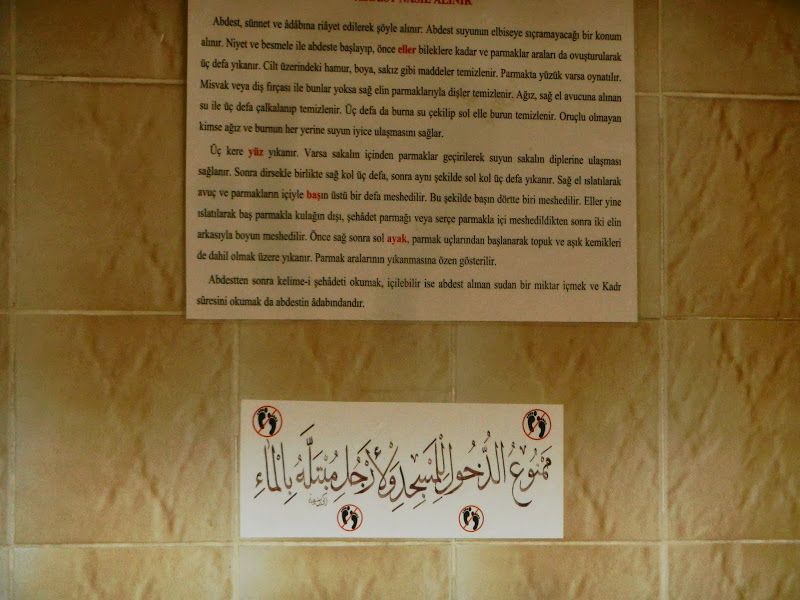 ABDEST NASIL ALINIR
Abdest, sünnet ve âdâbına riâyet edilerek şöyle alınır: Abdest suyunun elbiseye sıçramayacağı bir konum
alınır. Niyet ve besmele ile abdeste başlayıp, önce eller bileklere kadar ve parmaklar araları da ovuşturularak
üç defa yıkanır. Cilt üzerindeki hamur, boya, sakız gibi maddeler temizlenir. Parmakta yüzük varsa oynatılır.
Misvak veya diş fırçası ile bunlar yoksa sağ elin parmaklarıyla dişler temizlenir. Ağız, sağ el avucuna alınan
su ile üç defa çalkalanıp temizlenir. Üç defa da burna su çekilip sol elle burun temizlenir. Oruçlu olmayan
kimse ağız ve burnun her yerine suyun iyice ulaşmasını sağlar.
Üç kere yüz yıkanır. Varsa sakalın içinden parmaklar geçirilerek suyun sakalın diplerine ulaşması
sağlanır. Sonra dirsekle birlikte sağ kol üç defa, sonra aynı şekilde sol kol üç defa yıkanır. Sağ el ıslatılarak
avuç ve parmakların içiyle başın üstü bir defa meshedilir. Bu şekilde başın dörtte biri meshedilir. Eller yine
ıslatılarak baş parmakla kulağın dışı, şehâdet parmağı veya serçe parmakla içi meshedildikten sonra iki elin
arkasıyla boyun meshedilir. Önce sağ sonra sol ayak, parmak uçlarından başlanarak topuk ve aşık kemikleri
de dahil olmak üzere yıkanır. Parmak aralarının yıkanmasına özen gösterilir.
Abdestten sonra kelime-i şehâdeti okumak, içilebilir ise abdest alınan sudan bir miktar içmek ve Kadr
sûresini okumak da abdestin âdabındandır.
مَمْنُوعُ الدُّخُولِ لِلْمَسْجِدِ وَلْأَرْجُلِ مُبْتَلَّهُ بِالْمَاءِ